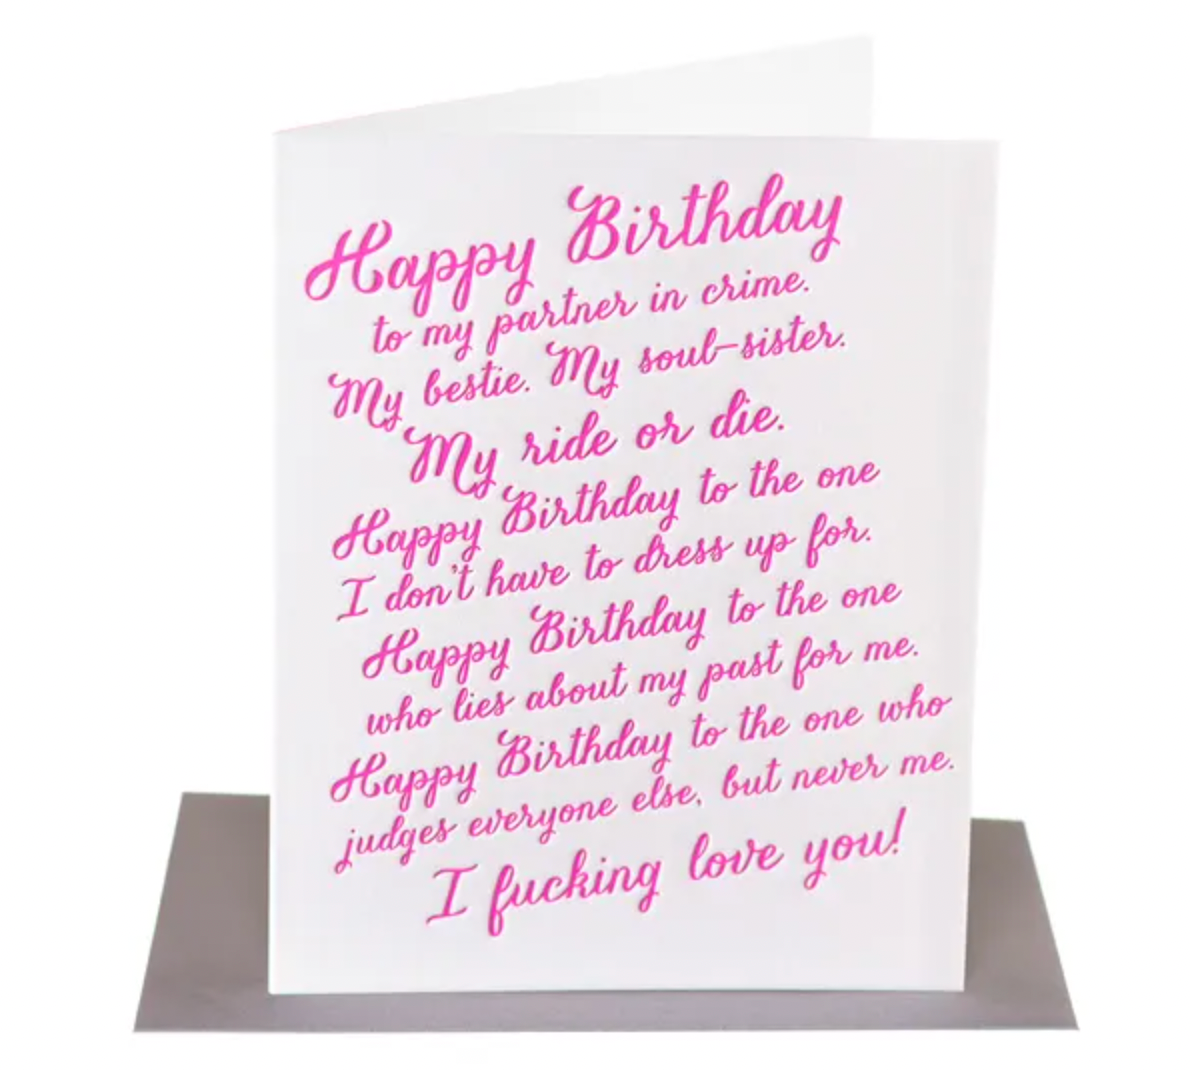 Happy Birthday
to my partner in crime.
My bestie. My soul-sister.
My ride or die.
Happy Birthday to the one
I don't have to dress up for.
Happy Birthday to the one
who lies about my past for me.
Happy Birthday to the one who
judges everyone else, but never me.
I fucking love you!